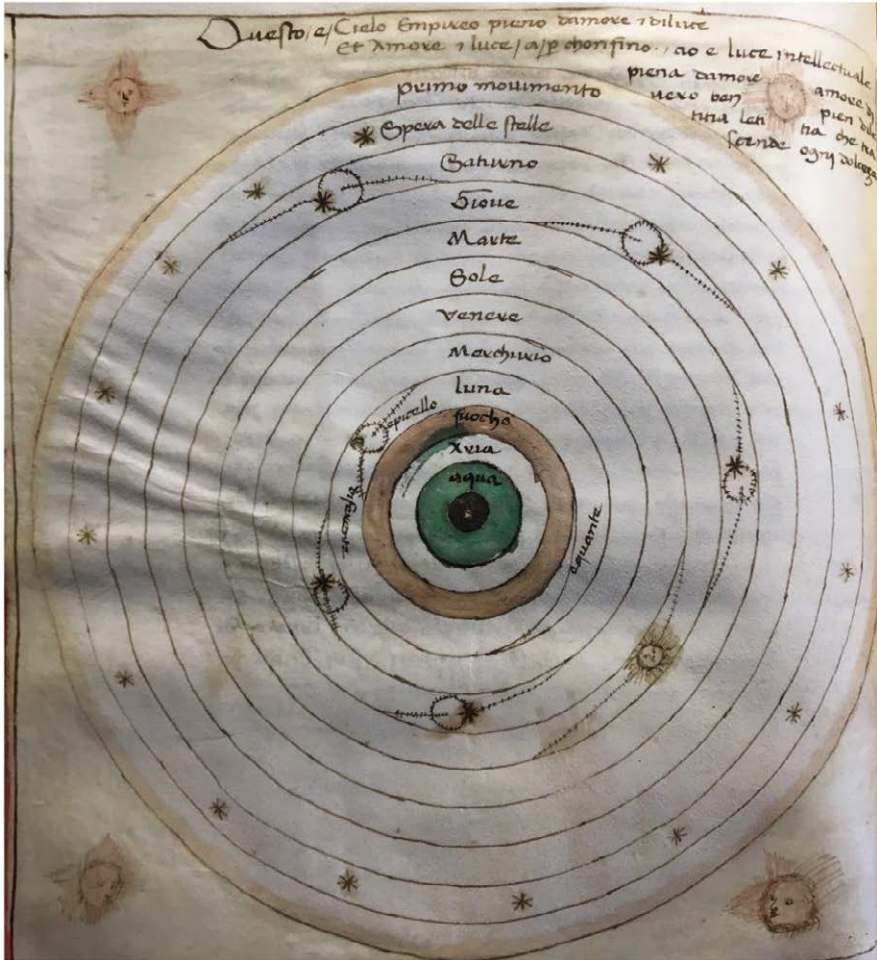 Questo / e / Cielo Empireo pieno damore 1 diluce
Et Amore 1 luce / a / p chonfino . , cio e luce intellectuale
piena damore
amore di
vero ben
pien di
tizia leti
tia che tra
scende ogny dolceza
primo mouimento
Spera delle stelle
Saturno
Gioue
Marte
Sole
venere
Merchurio
luna
epicello
fuocho
aria
aqua
diferente
equante